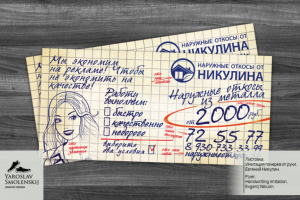 Мы экономим
на рекламе! Чтобы
не экономить на
качестве!
Работу
выполним:
быстро
качественно
недорого
выберите
два условия
НАРУЖНЫЕ ОТКОСЫ ОТ
НИКУЛИНА
Наружные откосы
из металла
от 2000 р.
72-55-77
8 930 733 33 99
НАРУЖНЫЕ ОТКОСЫ ОТ
НИКУЛИНА
YAROSLAV
SMOLENSKIJ
Листовка.
Имитация почерка от руки.
Евгений Никулин.
Flyer.
Handwriting imitation.
Evgenij Nikulin.